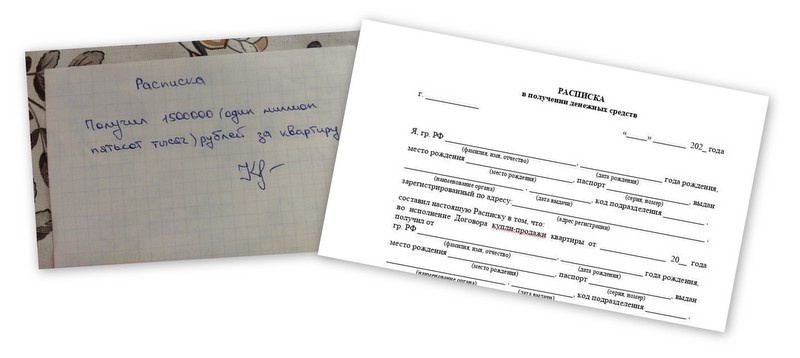 Расписка
Получил 1500000 (один миллион
пятьсот тысяч) рублей за квартиру
РАСПИСКА
в получении денежных средств
г. ____________
«____» ________ 202_ года
Я, гр. РФ ____________, ____________ года рождения,
(фамилия, имя, отчество) (дата рождения)
место рождения ____________, паспорт ____________, выдан
(место рождения) (серия, номер)
____________, ____________, код подразделения ________,
(наименование органа) (дата выдачи)
зарегистрированный по адресу: ____________,
(адрес регистрации)
составил настоящую Расписку в том, что:
во исполнение Договора купли-продажи квартиры от ____________ 20__ года
получил от
гр. РФ ____________, ____________ года рождения,
(фамилия, имя, отчество) (дата рождения)
место рождения ____________, паспорт ____________, выдан
(место рождения) (серия, номер)
____________, ____________, код подразделения ________,
(наименование органа) (дата выдачи)